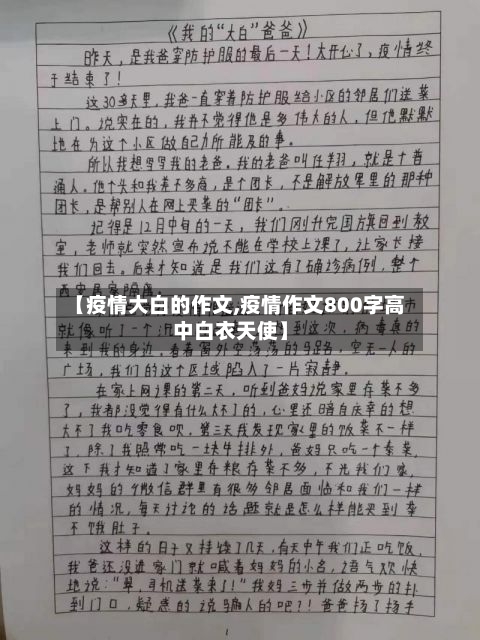 《我的“大白”爸爸》
昨天，是我爸穿防护服的最后一天！太开心了，疫情终
于结束了！
这30多天里，我爸一直穿着防护服给小区的邻居们送菜
上门。说实在的，我并不觉得他是多伟大的人，但他默默
地在为这个小区做自己力所能及的事。
所以我想写写我的老爸。我的老爸叫任翔，就是个普
通人。他个头和我差不多高，是个团长，不是解放军里的那种
团长，是帮别人在网上买菜的“团长”。
记得是12月中旬的一天，我们刚升完国旗回到教
室，老师就突然宣布说不能在学校上课了，让家长接
我们回去。后来才知道是我们这有了确诊病例，整个
西安居家隔离。
【疫情大白的作文,疫情作文800字高
中白衣天使】
就像听了一个
到这次，病毒真的
来到我的身边，看着窗外空荡荡的马路，空无一人的
广场，我们的这个区域陷入了一片寂静。
在家上网课的第二天，听到爸妈说家里存菜不多
了，我都没觉得有什么大不了的，心里还暗自庆幸的想
大不了我吃零食呗，第三天我发现家里的饭菜不一样
了，除了我照常吃一块牛排外，爸妈只吃一个素菜，
这下我才知道了家里存粮存菜不多，不光我们家，
妈妈的个微信群里有很多邻居面临和我们一样
的情况，每天讨论的话题就是怎么样能买到菜
不饿肚子。
这样的日子又持续了几天，有天中午我们正吃饭，
我爸还没进家门就喊着妈妈的小名，语气欢快
地说：“翠，司机送菜来了！”我妈三步并做两步的扑
到门口，疑惑的说骗人的吧？！爸爸扬了扬手
1